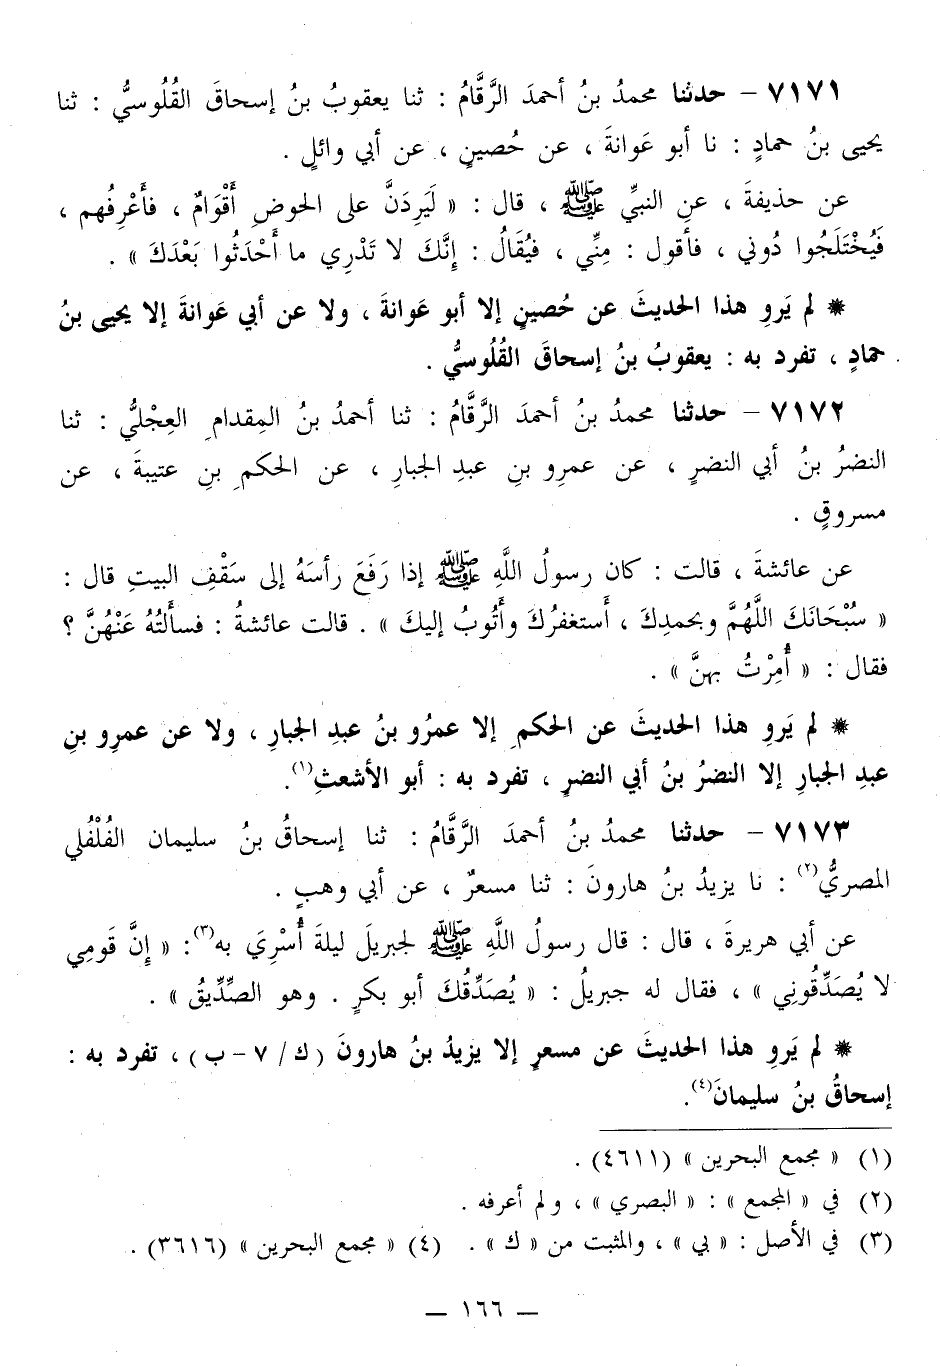 ٧١٧١ – حدثنا محمدُ بنُ أحمدَ الرَّقَّامُ : ثنا يعقوبُ بنُ إسحاقَ القُلُوسيُّ : ثنا
يحيى بنُ حمادٍ : نا أبو عَوانةَ ، عن حُصينٍ ، عن أبي وائلٍ .
عن حذيفةَ ، عنِ النبيِّ ﷺ ، قال : « لَيَرِدَنَّ على الحوضِ أَقْوَامٌ ، فأَعْرِفُهم ،
فَيُخْتَلَجُوا دُوني ، فأقول : مِنِّي ، فيُقَالُ : إِنَّكَ لا تَدْرِي ما أَحْدَثُوا بَعْدَكَ » .
* لم يَروِ هذا الحديثَ عن حُصينٍ إلا أبو عَوانةَ ، ولا عن أبي عَوانةَ إلا يحيى بنُ
حمادٍ ، تفرد به : يعقوبُ بنُ إسحاقَ القُلُوسيُّ .
٧١٧٢ – حدثنا محمدُ بنُ أحمدَ الرَّقَّامُ : ثنا أحمدُ بنُ المِقدامِ العِجْليُّ : ثنا
النضرُ بنُ أبي النضرِ ، عن عمرِو بنِ عبدِ الجبارِ ، عن الحكمِ بنِ عتيبةَ ، عن
مسروقٍ .
عن عائشةَ ، قالت : كان رسولُ اللَّهِ ﷺ إذا رَفَعَ رأسَهُ إلى سَقْفِ البيتِ قال :
« سُبْحَانَكَ اللَّهُمَّ وبحمدِكَ ، أَستغفرُكَ وأَتُوبُ إليكَ » . قالت عائشةُ : فسألتُهُ عَنْهُنَّ ؟
فقال : « أُمِرْتُ بهنَّ » .
* لم يَروِ هذا الحديثَ عن الحكمِ إلا عمرُو بنُ عبدِ الجبارِ ، ولا عن عمرِو بنِ
عبدِ الجبارِ إلا النضرُ بنُ أبي النضرِ ، تفرد به : أبو الأشعثِ(١).
٧١٧٣ – حدثنا محمدُ بنُ أحمدَ الرَّقَّامُ : ثنا إسحاقُ بنُ سليمان الفُلْفُلي
المصريُّ(٢) : نا يزيدُ بنُ هارونَ : ثنا مسعرٌ ، عن أبي وهبٍ .
عن أبي هريرةَ ، قال : قال رسولُ اللَّهِ ﷺ لجبريلَ ليلةَ أُسْرِيَ به(٣): « إِنَّ قَومِي
لا يُصَدِّقُونِي » ، فقال له جبريلُ : « يُصَدِّقُكَ أبو بكرٍ . وهو الصِّدِّيقُ » .
* لم يَروِ هذا الحديثَ عن مسعرٍ إلا يزيدُ بنُ هارونَ ( ك / ٧ – ب ) ، تفرد به :
إسحاقُ بنُ سليمانَ(٤).
(١) « مجمع البحرين » (٤٦١١) .
(٢) في « المجمع » : « البصري » ، ولم أعرفه .
(٣) في الأصل : « بي » ، والمثبت من « ك » . (٤) « مجمع البحرين » (٣٦١٦) .
– ١٦٦ –